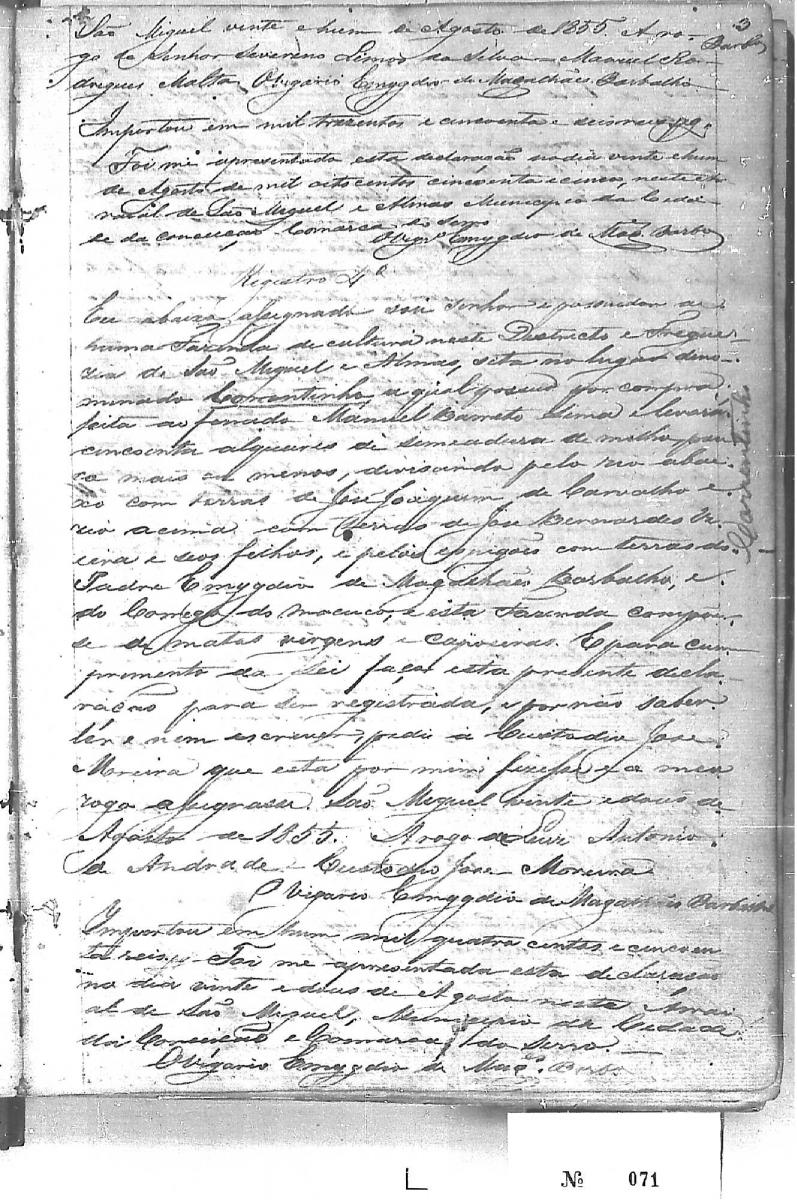 3
Barb.o
São Miguel vinte e hum de Agosto de 1855. A ro-
go do Senhor Severeno Lemos da Silva = Manuel Ro-
drigues Malta, O Vigario Emygdio de Magalhães Barbalho
Importou em mil trezentos e cincoenta e seis reis pg.
Foi me apresentada esta declaração no dia vinte e hum
de Agosto de mil oitocentos cincoenta e cinco, neste Ar-
raial de São Miguel e Almas Municipio da Cida-
de da Conceição Comarca do Serro
O Vigr.o Emygdio de Mag. Barbo
Registro 4º
Eu abaixo assignado sou Senhor e possuidor de
huma Fazenda de cultura neste Destricto e Fregue-
zia de São Miguel e Almas, seta no lugar deno-
minado Correntinho, a qual possuo por compra
feita ao fenado Manuel Barreto Lima e levará
cincoenta alqueires de semeadura de milho, pou-
co mais ou menos, divisando pelo rio abai-
xo com terras de Jose Joaquim de Carvalho e
rio acima com terras de Jose Bernardes Vi-
eira e seos filhos, e pelos espigões com terras do
Padre Emygdio de Magalhães Barbalho, e
do Corrego do macuco, e esta Fazenda compoe-
se de matas virgens e capoeiras. E para cum-
primento da Lei faço esta presente decla-
ração para ser registrada, e por não saber
ler e nem escrever, pedi a Custodio Jose
Moreira que esta por mim fizesse e a meu
rogo assignasse. São Miguel vinte e dous de
Agosto de 1855. A rogo de Luiz Antonio
de Andrade = Custodio Jose Moreira
O Vigario Emygdio de Magalhães Barbalho
Importou em hum mil quatro centos e cincoen
ta reis. Foi me apresentada esta declaracao
no dia vinte e dous de Agosto neste Arrai
al de São Miguel, Municipio da Cidade
da Conceição e Comarca do Serro.
O Vigario Emygdio de Mag.es Barbo
Correntinho
L
№ 071